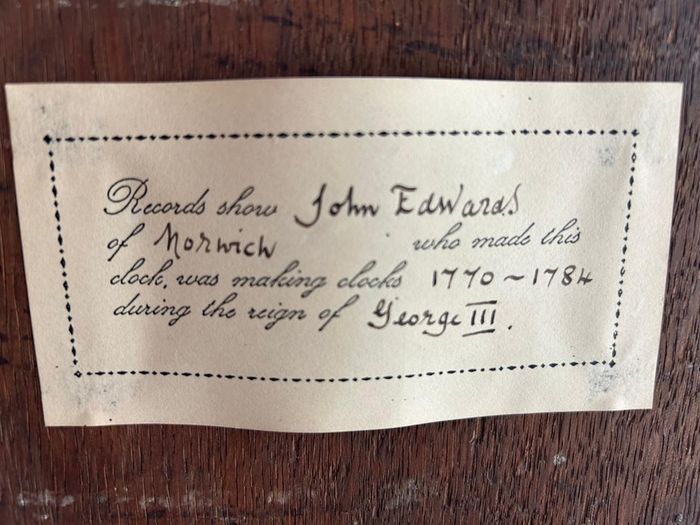 Records show John Edwards
of Norwich who made this
clock, was making clocks 1770 ~ 1784
during the reign of George III.